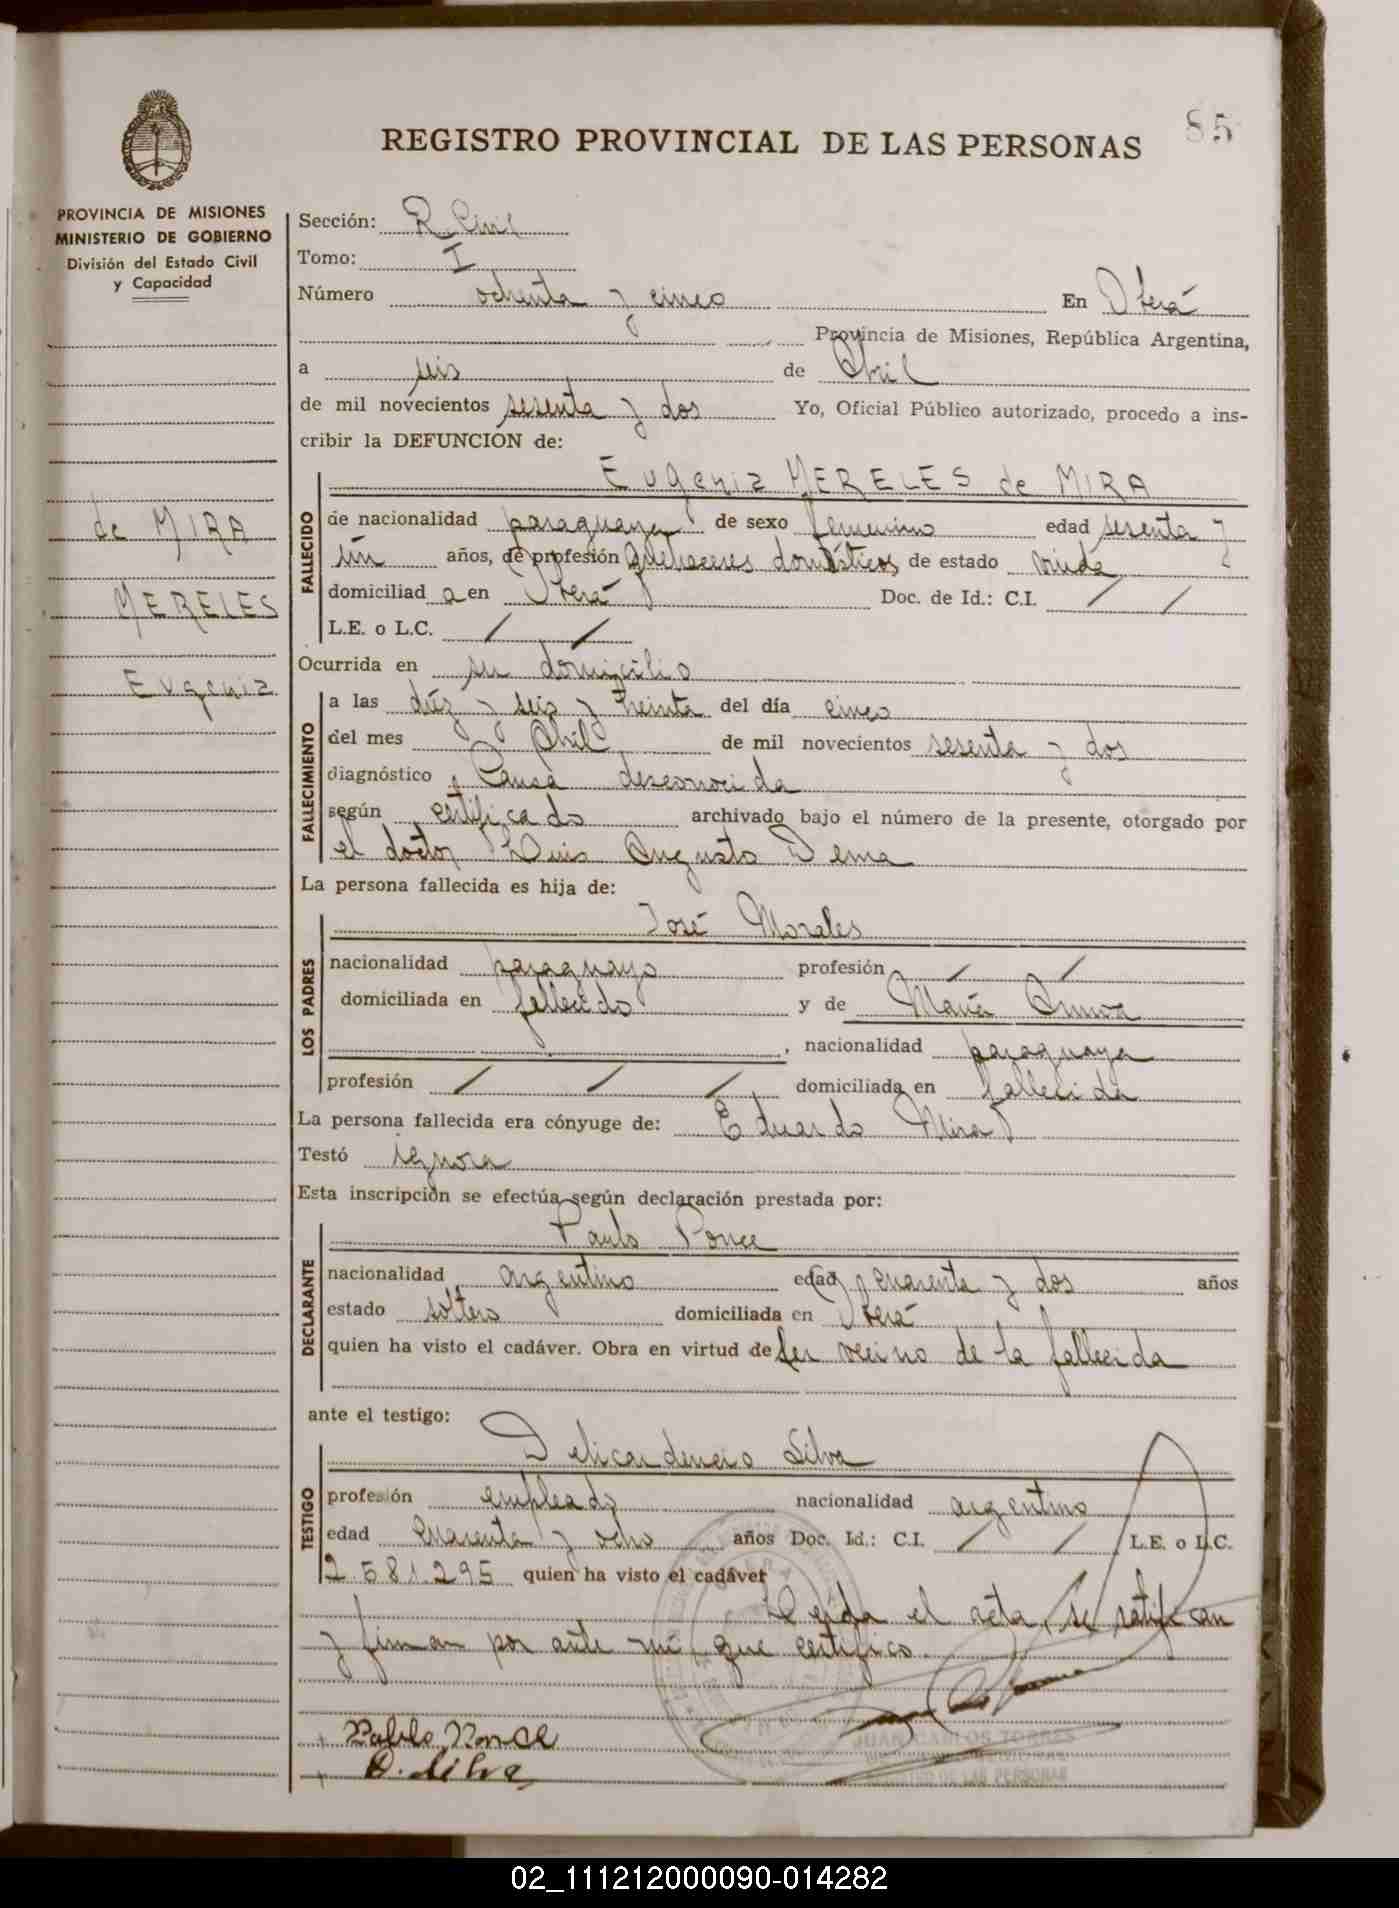 85
REGISTRO PROVINCIAL DE LAS PERSONAS
PROVINCIA DE MISIONES
MINISTERIO DE GOBIERNO
División del Estado Civil
y Capacidad
de MIRA
MERELES
Eugenia
Sección: R. Civil
Tomo: I
Número ochenta y cinco En Oberá
Provincia de Misiones, República Argentina,
a seis de Abril
de mil novecientos sesenta y dos Yo, Oficial Público autorizado, procedo a ins-
cribir la DEFUNCION de:
Eugenia MERELES de MIRA
FALLECIDO
de nacionalidad paraguaya de sexo femenino edad sesenta y
un años, de profesión quehaceres domésticos de estado viuda
domiciliad a en Oberá Doc. de Id.: C.I. / /
L.E. o L.C. / /
Ocurrida en su domicilio
FALLECIMIENTO
a las diéz y seis y treinta del día cinco
del mes Abril de mil novecientos sesenta y dos
diagnóstico Causa desconocida
según certificado archivado bajo el número de la presente, otorgado por
el doctor Luis Augusto Derna
La persona fallecida es hija de:
José Morales
LOS PADRES
nacionalidad paraguayo profesión / /
domiciliada en fallecido y de María
, nacionalidad paraguaya
profesión / / / domiciliada en fallecida
La persona fallecida era cónyuge de: Eduardo Mira
Testó ignora
Esta inscripción se efectúa según declaración prestada por:
Paulo Ponce
DECLARANTE
nacionalidad argentino edad cuarenta y dos años
estado soltero domiciliada en Oberá
quien ha visto el cadáver. Obra en virtud de ser vecino de la fallecida
ante el testigo:
Delicardencio Silva
TESTIGO
profesión empleado nacionalidad argentino
edad cuarenta y ocho años Doc. Id.: C.I. / / L.E. o L.C.
2.581.295 quien ha visto el cadáver
Leida el acta, se ratifican
y firman por ante mí, que certifico.
Pablo Ponce
D. Silva
JUAN CARLOS TORRES
REGISTRO DE LAS PERSONAS
02_111212000090-014282